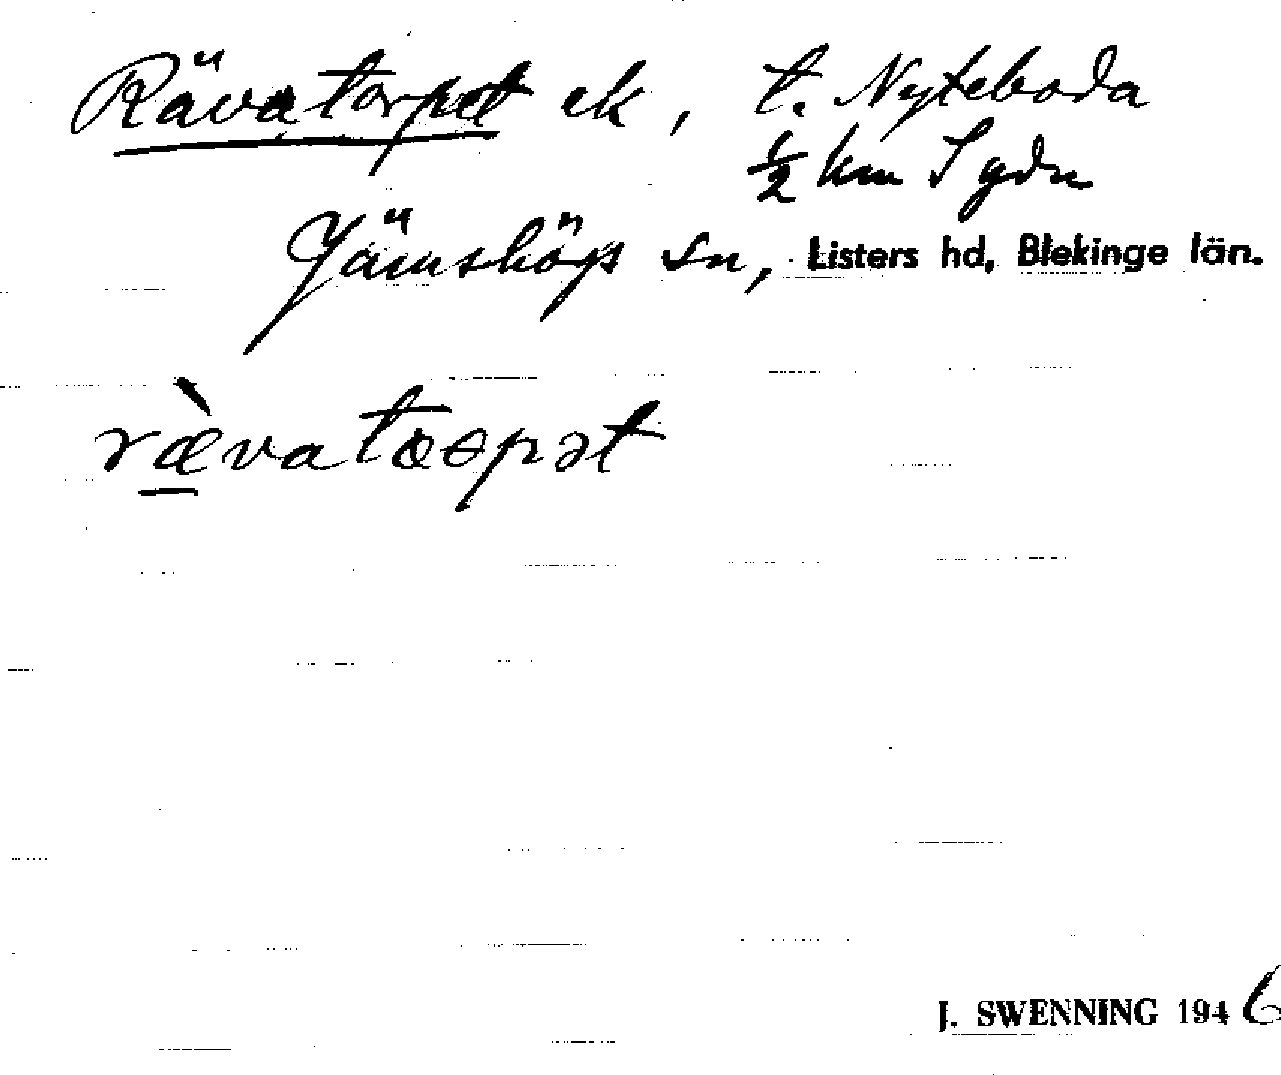 Rävatorpet ek, t. Nyteboda
½ km S gdn
Jämshögs sn, Listers hd, Blekinge län.
rævatɷɵpət
J. SWENNING 1946